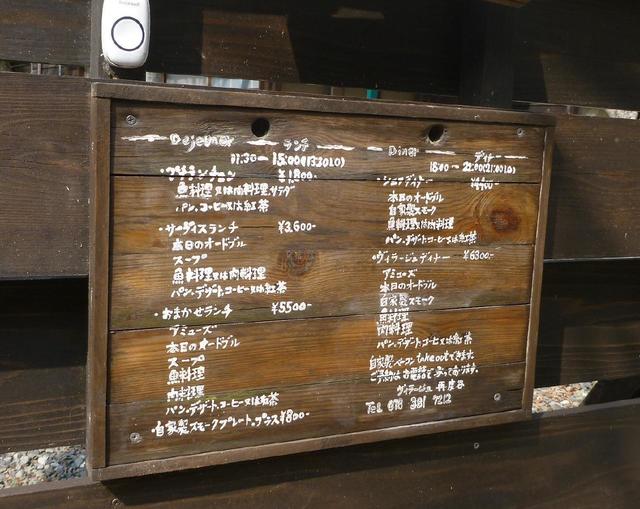 Dejeuner ランチ
11:30 — 15:00 (13:30 LO)
¥1,800-
魚料理又は肉料理、サラダ
パン、コーヒー又は紅茶
・サーディスランチ ¥3,600-
本日のオードブル
スープ
魚料理又は肉料理
パン、デザート、コーヒー又は紅茶
・おまかせランチ ¥5500-
アミューズ
本日のオードブル
スープ
魚料理
肉料理
パン、デザート、コーヒー又は紅茶
・自家製スモークプレート、プラス¥800-
Diner ディナー
18:00 — 22:00 (21:00 LO)
本日のオードブル
自家製スモーク
魚料理又は肉料理
パン、デザート、コーヒー又は紅茶
・ヴィラージュディナー ¥6300-
アミューズ
本日のオードブル
自家製スモーク
魚料理
肉料理
パン、デザート、コーヒー又は紅茶
自家製ベーコン take outできます。
ご予約はお電話で承っております。
ヴィラージュ
Tel 078 381 7212